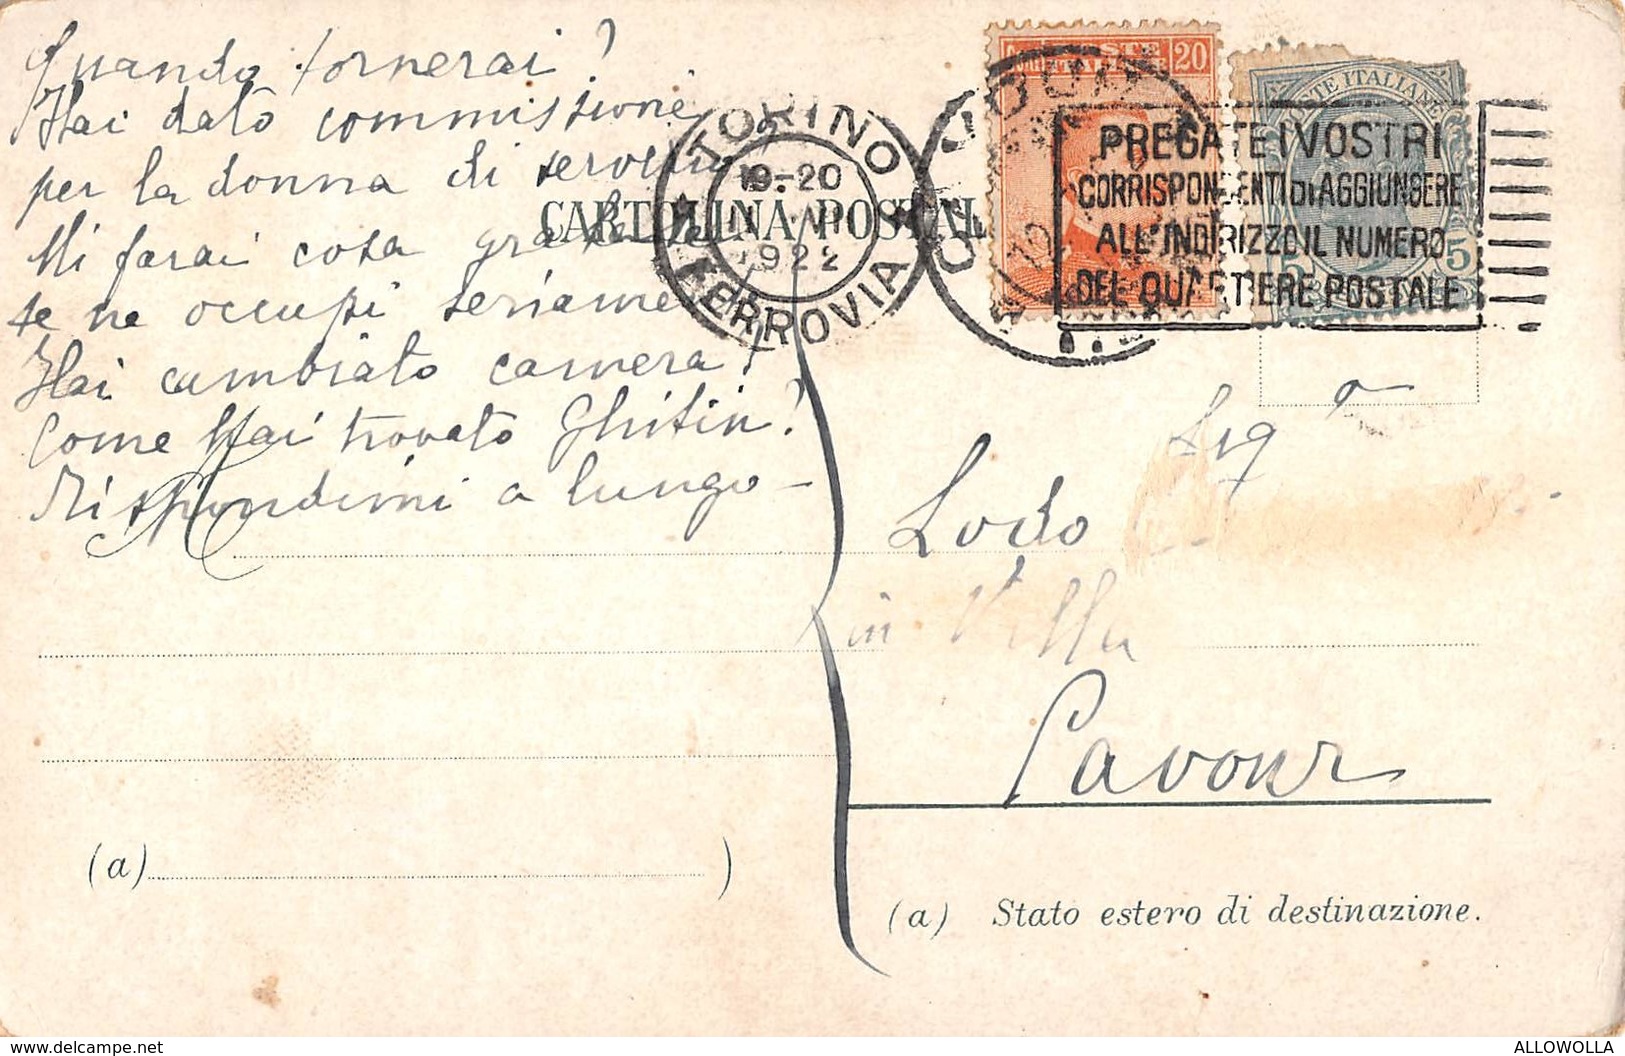 Quando tornerai?
Hai dato commissione
per la donna di servizio
Mi farai cosa grata se
te ne occupi seriamente
Hai cambiato camera?
Come hai trovato Ghitin?
Rispondimi a lungo -
CARTOLINA POSTAL
TORINO
19-20
1922
FERROVIA
POSTE ITALIANE
20
POSTE ITALIANE
5
PREGATE I VOSTRI
CORRISPONDENTI DI AGGIUNGERE
ALL'INDIRIZZO IL NUMERO
DEL QUARTIERE POSTALE
Sig
Lodo
in Villa
Cavour
(a) )
(a) Stato estero di destinazione.
www.delcampe.net
ALLOWOLLA